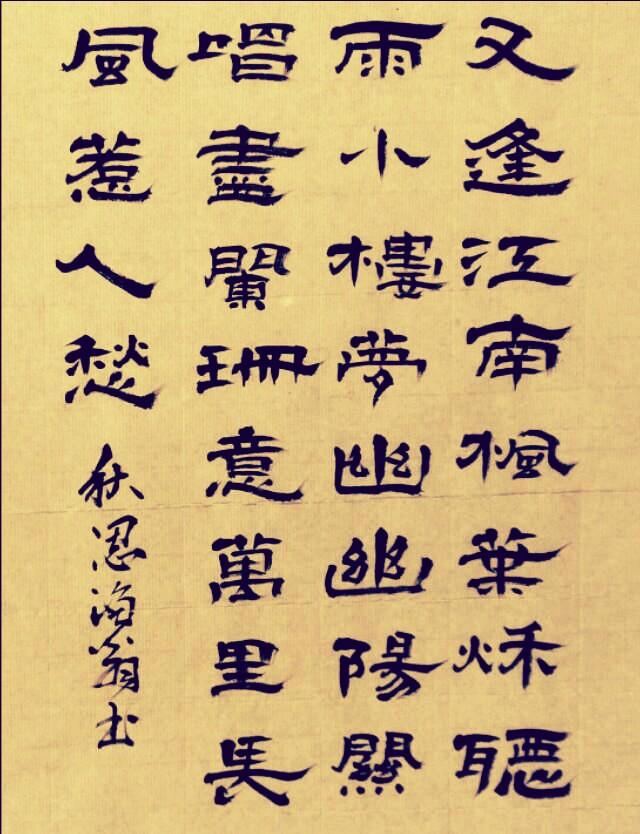 又逢江南楓葉秌聽
雨小樓夢幽幽陽關
唱盡闌珊意萬里長
風惹人愁 秋思海翁书